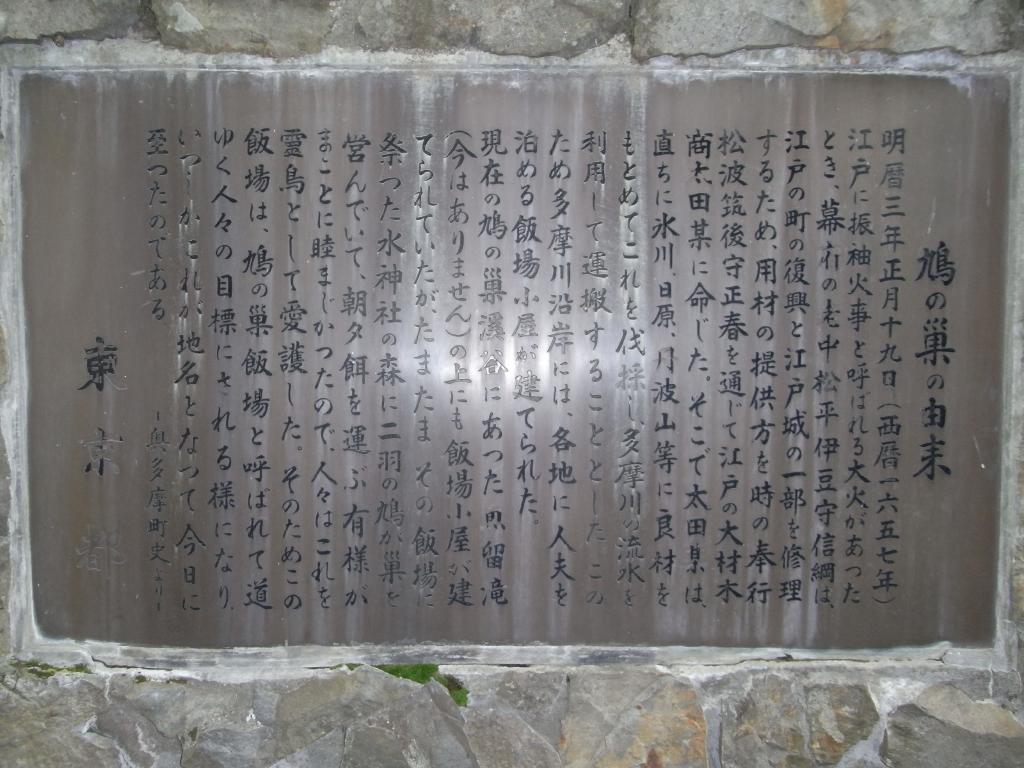 鳩の巣の由来
明暦三年正月十九日(西暦一六五七年)
江戸に振袖火事と呼ばれる大火があった
とき、幕府の老中松平伊豆守信綱は、
江戸の町の復興と江戸城の一部を修理
するため、用材の提供方を時の奉行
松波筑後守正春を通じて江戸の大材木
商太田某に命じた。そこで太田某は、
直ちに氷川、日原、丹波山等に良材を
もとめてこれを伐採し、多摩川の流水を
利用して運搬することとした。この
ため多摩川沿岸には、各地に人夫を
泊める飯場小屋が建てられた。
現在の鳩の巣溪谷にあった魚留滝
(今はありません)の上にも飯場小屋が建
てられていたが、たまたま その飯場に
祭つた水神社の森に二羽の鳩が巣を
営んでいて、朝夕餌を運ぶ有様が
まことに睦まじかつたので、人々はこれを
靈鳥として愛護した。そのためこの
飯場は、鳩の巣飯場と呼ばれて道
ゆく人々の目標にされる様になり、
いつしかこれが地名となつて今日に
至つたのである。
ー奥多摩町史よりー
東京都